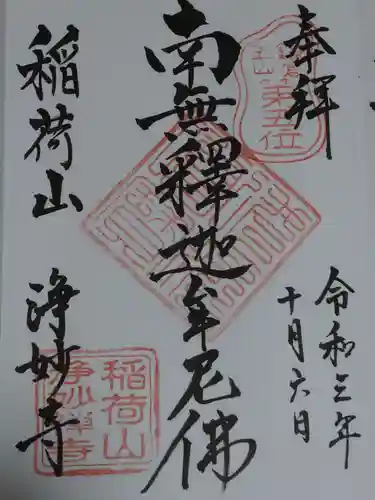 奉拝
令和三年
十月六日
第五位
南無釋迦牟尼佛
稲荷山
浄妙寺
稲荷山
浄妙禅寺